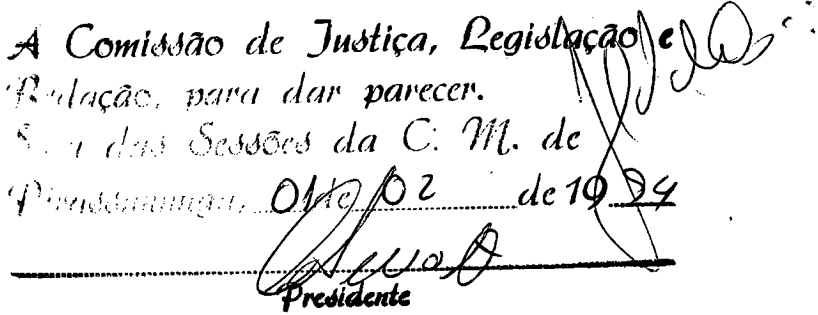 A Comissão de Justiça, Legislação e
Redação, para dar parecer.
Sala das Sessões da C. M. de
Pirassununga, 01 de 02 de 1994
Presidente